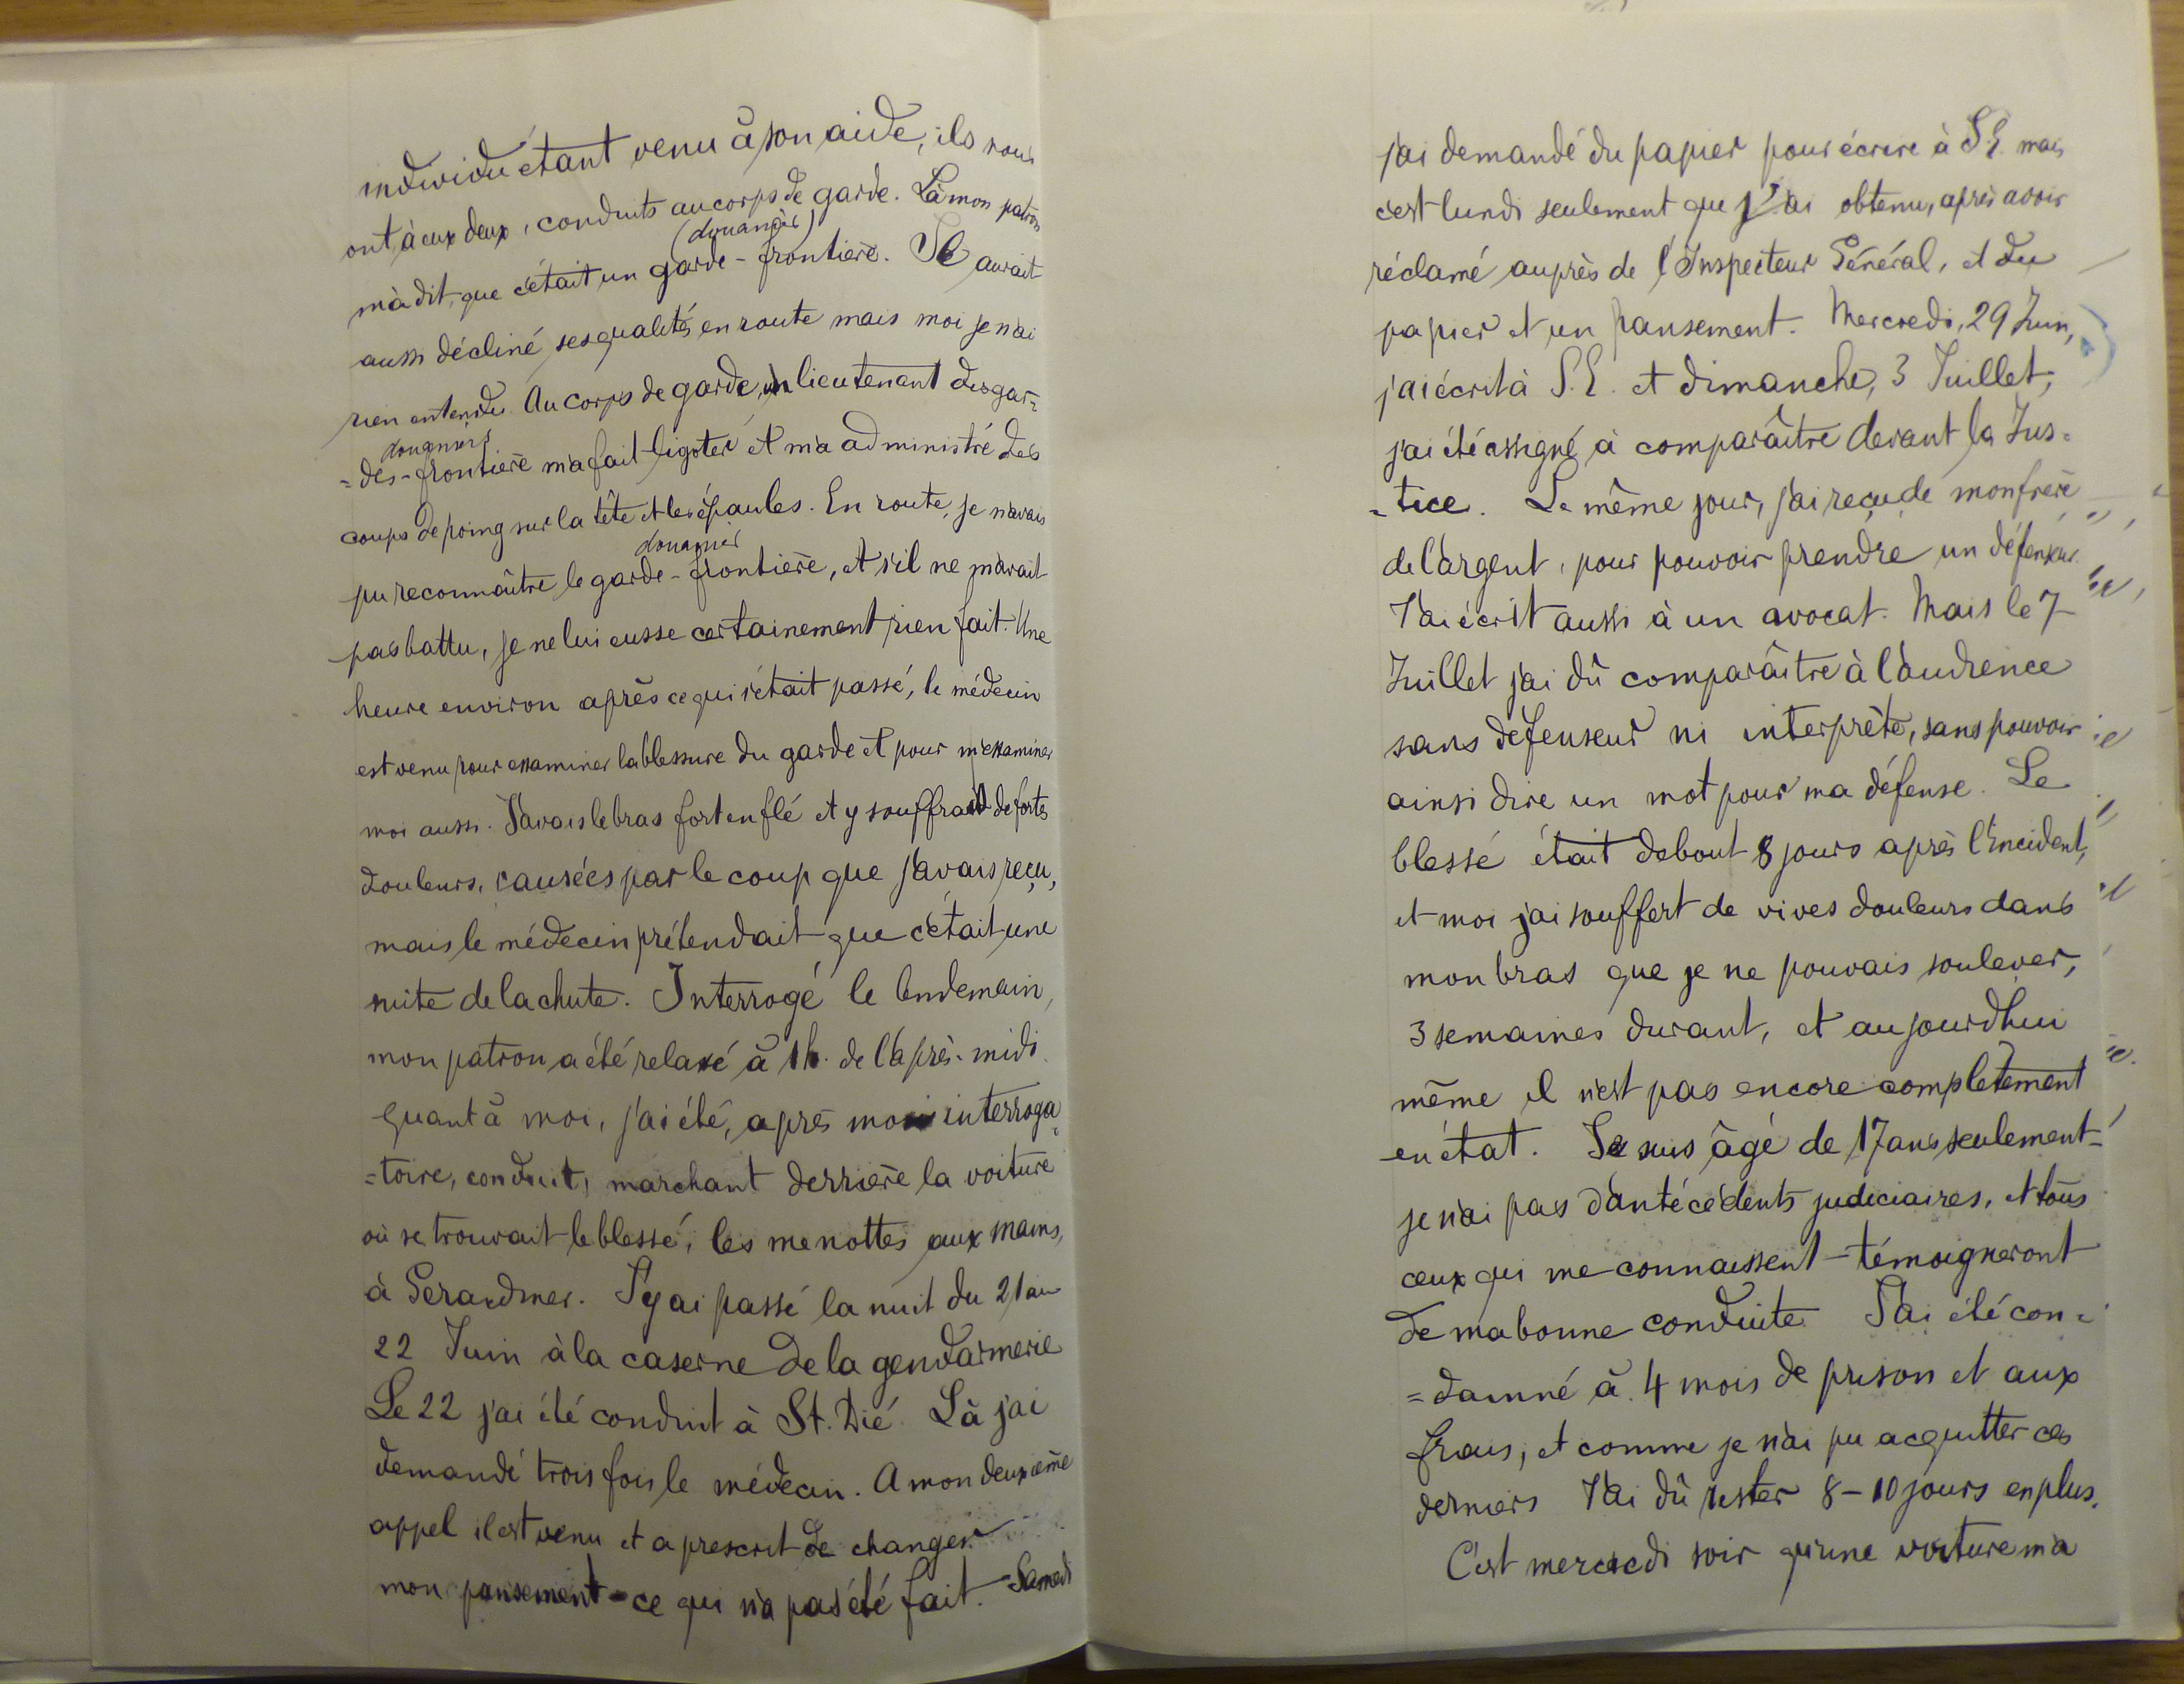 individu étant venu à son aide, ils nous
ont, à eux deux, conduits au corps de garde. Là mon patron
(douanier)
m'a dit, que c'était un garde-frontière. Il aurait
aussi décliné ses qualités en route mais moi je n'ai
rien entendu. Au corps de garde, un lieutenant des gar=
douaniers
=des-frontière m'a fait ligoter et m'a administré des
coups de poing sur la tête et les épaules. En route, je n'avais
douanier
pu reconnaître le garde-frontière, et s'il ne m'avait
pas battu, je ne lui eusse certainement rien fait. Une
heure environ après ce qui s'était passé, le médecin
est venu pour examiner la blessure du garde et pour m'examiner
moi aussi. J'avais le bras fort enflé et y souffrait de fortes
douleurs, causées par le coup que j'avais reçu,
mais le médecin prétendait que c'était une
suite de la chute. Interrogé le lendemain,
mon patron a été relaxé à 1h. de l'après-midi.
Quant à moi, j'ai été, après mon interroga=
=toire, conduit, marchant derrière la voiture
où se trouvait le blessé, les menottes aux mains,
à Gerardmer. J'y ai passé la nuit du 21 au
22 Juin à la caserne de la gendarmerie
Le 22 j'ai été conduit à St. Dié. Là j'ai
demandé trois fois le médecin. A mon deuxième
appel il est venu et a prescrit de changer
mon pansement - ce qui n'a pas été fait. Samedi
j'ai demandé du papier pour écrire à S.E. mais
c'est lundi seulement que j'ai obtenu, après avoir
réclamé auprès de l'Inspecteur Général, et du
papier et un pansement. Mercredi, 29 Juin,
j'ai écrit à S.E. et dimanche, 3 Juillet,
j'ai été assigné à comparaître devant la Jus=
=tice. Le même jour, j'ai reçu de mon frère
de l'argent, pour pouvoir prendre un défenseur.
J'ai écrit aussi à un avocat. Mais le 7
Juillet j'ai dû comparaître à l'audience
sans défenseur ni interprète, sans pouvoir
ainsi dire un mot pour ma défense. Le
blessé était debout 8 jours après l'incident,
et moi j'ai souffert de vives douleurs dans
mon bras que je ne pouvais soulever,
3 semaines durant, et aujourd'hui
même il n'est pas encore complètement
en état. Je suis âgé de 17 ans seulement
je n'ai pas d'antécédents judiciaires, et tous
ceux qui me connaissent témoigneront
de ma bonne conduite J'ai été con=
=damné à 4 mois de prison et aux
frais, et comme je n'ai pu acquitter ces
derniers J'ai dû rester 8-10 jours en plus.
C'est mercredi soir qu'une voiture m'a